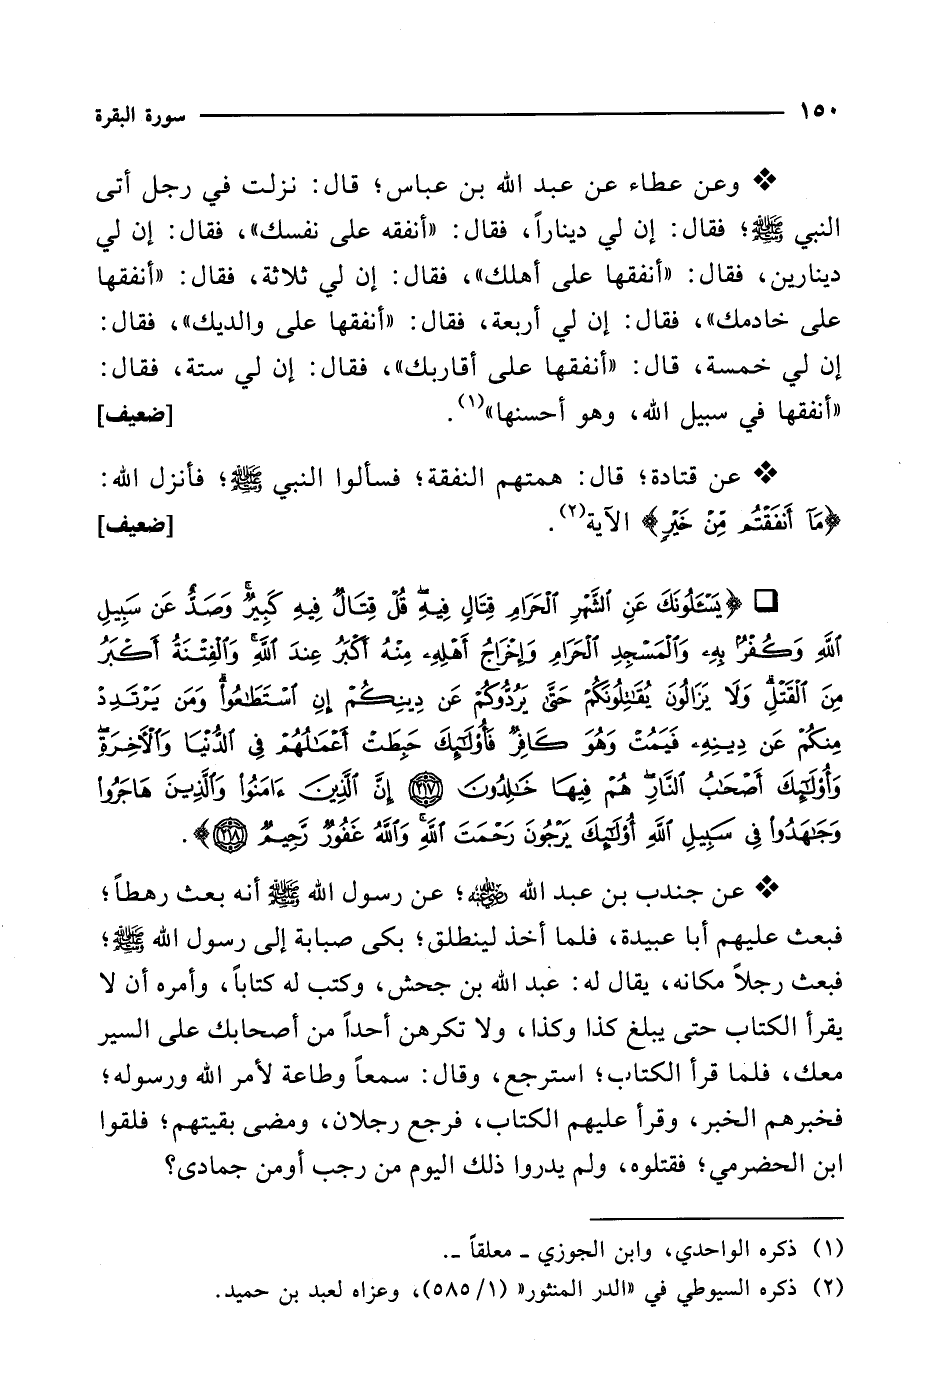 ١٥٠ سورة البقرة
❖ وعن عطاء عن عبد الله بن عباس؛ قال: نزلت في رجل أتى
النبي ﷺ؛ فقال: إن لي ديناراً، فقال: «أنفقه على نفسك»، فقال: إن لي
دينارين، فقال: «أنفقها على أهلك»، فقال: إن لي ثلاثة، فقال: «أنفقها
على خادمك»، فقال: إن لي أربعة، فقال: «أنفقها على والديك»، فقال:
إن لي خمسة، قال: «أنفقها على أقاربك»، فقال: إن لي ستة، فقال:
«أنفقها في سبيل الله، وهو أحسنها»(١). [ضعيف]
❖ عن قتادة؛ قال: همتهم النفقة؛ فسألوا النبي ﷺ؛ فأنزل الله:
﴿مَآ أَنفَقْتُم مِّنْ خَيْرٍ﴾ الآية(٢). [ضعيف]
❑ ﴿يَسْـَٔلُونَكَ عَنِ ٱلشَّهْرِ ٱلْحَرَامِ قِتَالٍ فِيهِۖ قُلْ قِتَالٌ فِيهِ كَبِيرٌۚ وَصَدٌّ عَن سَبِيلِ
ٱللَّهِ وَكُفْرٌۢ بِهِۦ وَٱلْمَسْجِدِ ٱلْحَرَامِ وَإِخْرَاجُ أَهْلِهِۦ مِنْهُ أَكْبَرُ عِندَ ٱللَّهِۚ وَٱلْفِتْنَةُ أَكْبَرُ
مِنَ ٱلْقَتْلِۗ وَلَا يَزَالُونَ يُقَـٰتِلُونَكُمْ حَتَّىٰ يَرُدُّوكُمْ عَن دِينِكُمْ إِنِ ٱسْتَطَـٰعُوا۟ۚ وَمَن يَرْتَدِدْ
مِنكُمْ عَن دِينِهِۦ فَيَمُتْ وَهُوَ كَافِرٌ فَأُو۟لَـٰٓئِكَ حَبِطَتْ أَعْمَـٰلُهُمْ فِى ٱلدُّنْيَا وَٱلْـَٔاخِرَةِۖ
وَأُو۟لَـٰٓئِكَ أَصْحَـٰبُ ٱلنَّارِۖ هُمْ فِيهَا خَـٰلِدُونَ ﴿٢١٧﴾ إِنَّ ٱلَّذِينَ ءَامَنُوا۟ وَٱلَّذِينَ هَاجَرُوا۟
وَجَـٰهَدُوا۟ فِى سَبِيلِ ٱللَّهِ أُو۟لَـٰٓئِكَ يَرْجُونَ رَحْمَتَ ٱللَّهِۚ وَٱللَّهُ غَفُورٌ رَّحِيمٌ ﴿٢١٨﴾﴾.
❖ عن جندب بن عبد الله رضي الله عنه؛ عن رسول الله ﷺ أنه بعث رهطاً؛
فبعث عليهم أبا عبيدة، فلما أخذ لينطلق؛ بكى صبابة إلى رسول الله ﷺ؛
فبعث رجلاً مكانه، يقال له: عبد الله بن جحش، وكتب له كتاباً، وأمره أن لا
يقرأ الكتاب حتى يبلغ كذا وكذا، ولا تكرهن أحداً من أصحابك على السير
معك، فلما قرأ الكتاب؛ استرجع، وقال: سمعاً وطاعة لأمر الله ورسوله؛
فخبرهم الخبر، وقرأ عليهم الكتاب، فرجع رجلان، ومضى بقيتهم؛ فلقوا
ابن الحضرمي؛ فقتلوه، ولم يدروا ذلك اليوم من رجب أومن جمادى؟
(١) ذكره الواحدي، وابن الجوزي ـ معلقاً ـ.
(٢) ذكره السيوطي في «الدر المنثور» (١/ ٥٨٥)، وعزاه لعبد بن حميد.